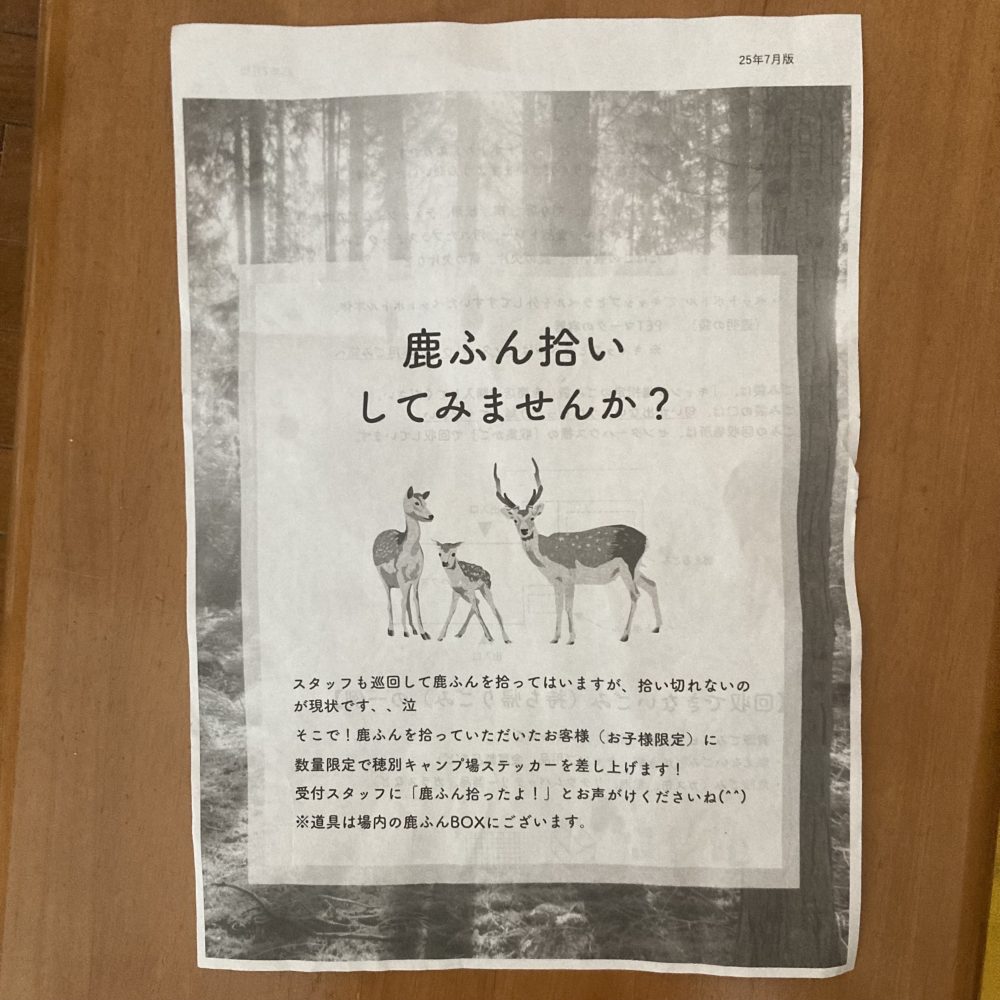 25年7月版
鹿ふん拾い
してみませんか？
スタッフも巡回して鹿ふんを拾ってはいますが、拾い切れないの
が現状です、、泣
そこで！鹿ふんを拾っていただいたお客様（お子様限定）に
数量限定で穂別キャンプ場ステッカーを差し上げます！
受付スタッフに「鹿ふん拾ったよ！」とお声がけくださいね(^^)
※道具は場内の鹿ふんBOXにございます。